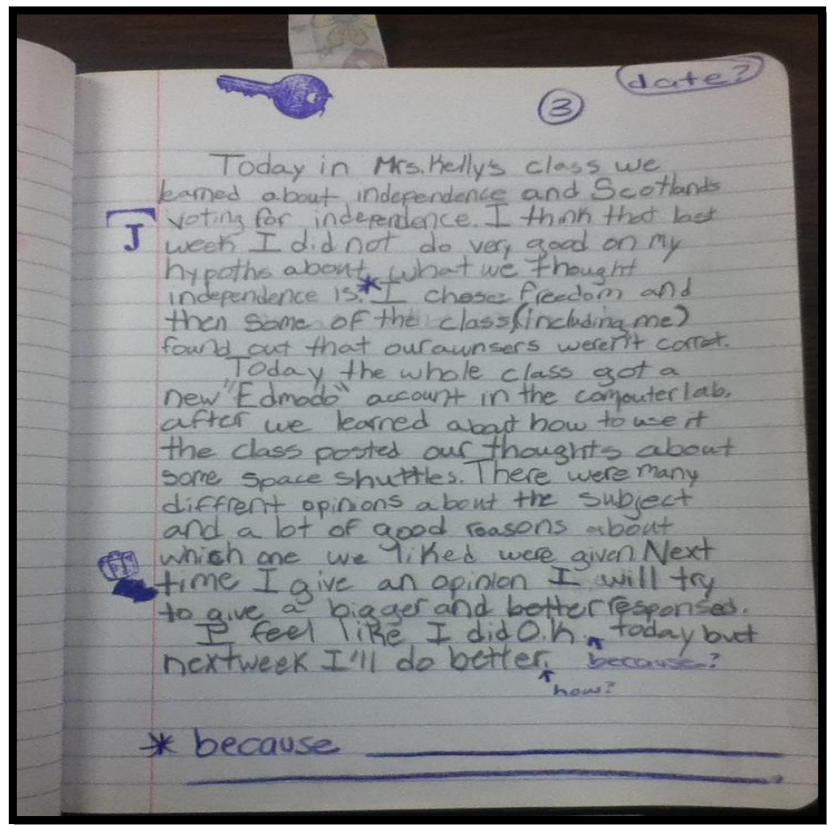 date?
3
Today in Mrs. Kelly's class we
learned about independence and Scotlands
voting for independence. I think that last
J
week I did not do very good on my
hypoths about what we thought
independence is.* I chose freedom and
then some of the class (including me)
found out that our aunsers weren't corret.
Today the whole class got a
new "Edmado" account in the computer lab.
after we learned about how to use it
the class posted our thoughts about
some space shuttles. There were many
diffrent opinions about the subject
and a lot of good reasons about
which one we liked were given. Next
time I give an opinion I will try
to give a bigger and better responsed.
I feel like I did O.k. today but
next week I'll do better. because?
how?
* because